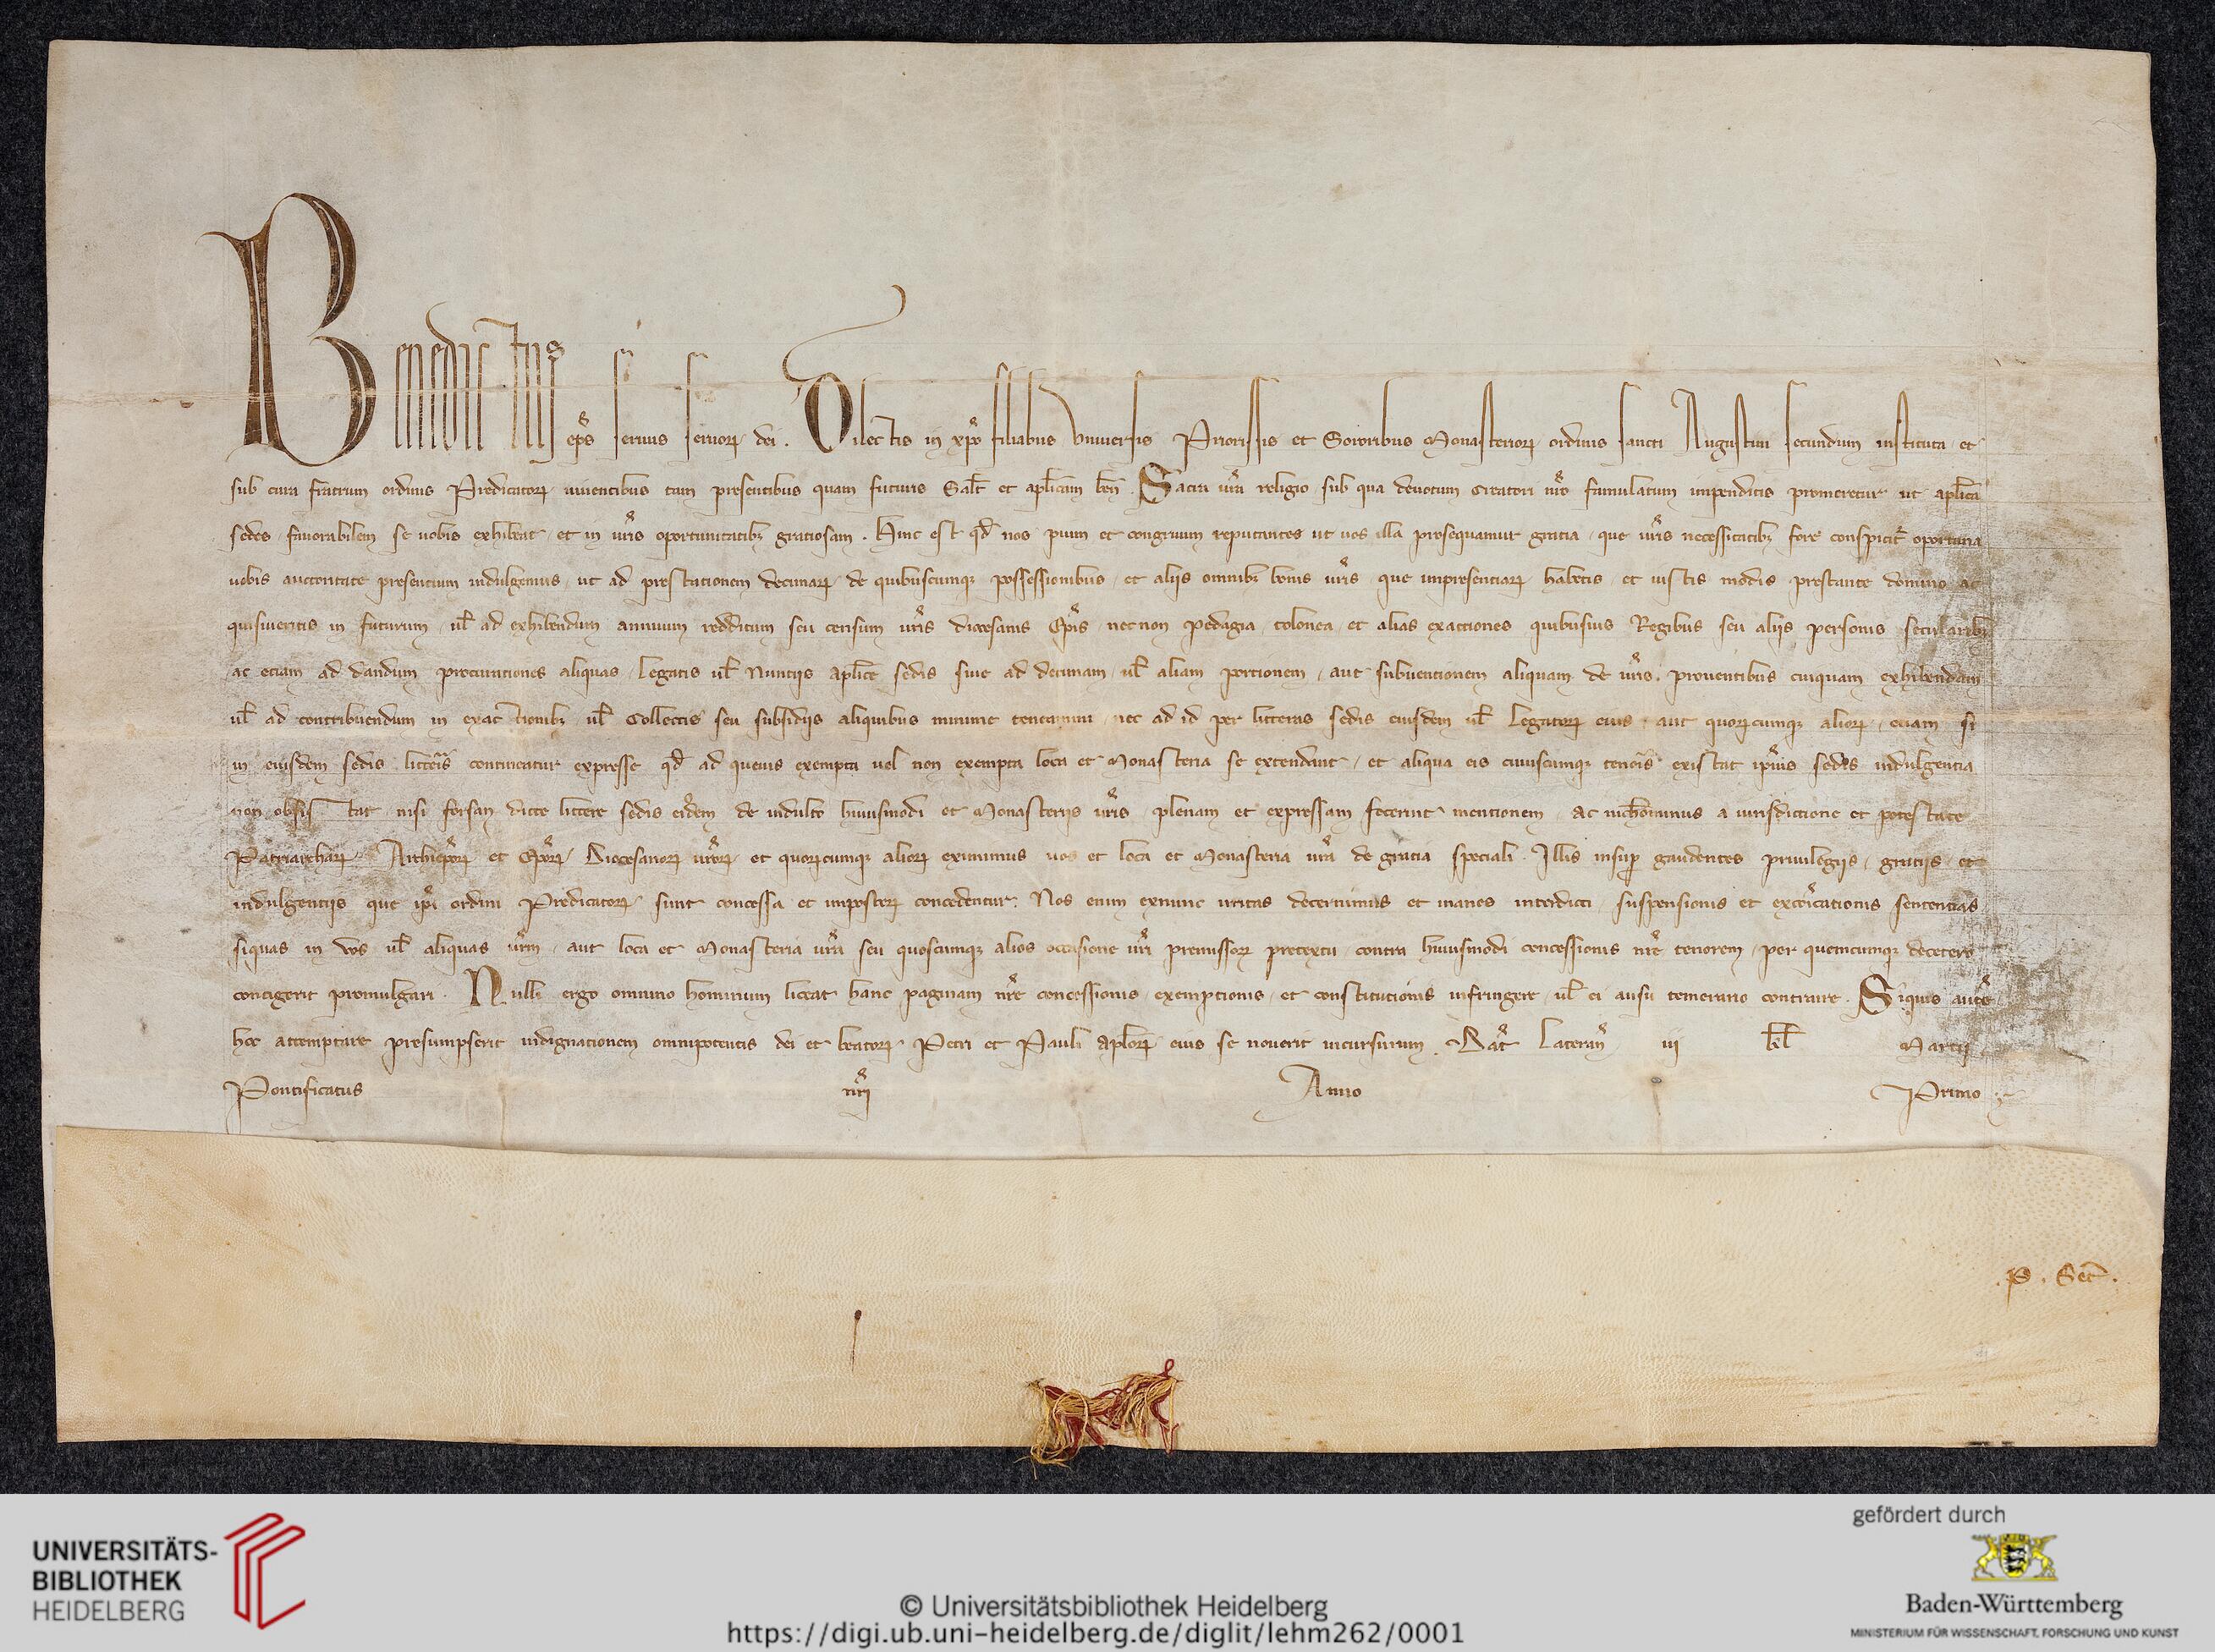 Benedictus ep̅s seruus seruoꝝ dei. Dilectis in xp̅o filiabus vniuersis Priorissis et Sororibus Monasterioꝝ ordinis sancti Augustini secundum instituta et
sub cura fratrum ordinis Predicatoꝝ uiuentibus tam presentibus quam futuris Salt̅ et apl̅icam ben̅. Sacra ur̅a religio sub qua deuotum creatori nr̅o famulatum impenditis promeretur ut apl̅ica
sedes fauorabilem se uobis exhibeat et in ur̅is oportunitatibꝫ gratiosam. Hinc est qd̅ nos pium et congruum reputantes ut uos illa prosequamur gratia que ur̅is necessitatibꝫ fore conspicit᷑ oportuna
uobis auctoritate presentium indulgemus ut ad prestationem decimaꝝ de quibuscumqꝫ possessionibus et aliis omnibꝫ bonis ur̅is que impresentiaꝝ habetis et iustis modis prestante domino ac
quisiueritis in futurum ul̅ ad exhibendum annuum redditum seu censum ur̅is diocesanis Ep̅is necnon pedagia tolonea et alias exactiones quibusuis Regibus seu aliis personis secularibꝫ
ac etiam ad dandum procurationes aliquas Legatis ul̅ Nuntiis apl̅ice sedis siue ad decimam ul̅ aliam portionem aut subuentionem aliquam de ur̅is prouentibus cuiquam exhibendam
ul̅ ad contribuendum in exactionibꝫ ul̅ Collectis seu subsidiis aliquibus minime teneamini nec ad id per litteras sedis eiusdem ul̅ Legatoꝝ eius aut quoꝝcumqꝫ alioꝝ etiam si
in eiusdem sedis litteris contineatur expresse qd̅ ad queuis exempta uel non exempta loca et Monasteria se extendant et aliqua eis cuiuscumqꝫ tenoris existat ip̅ius sedis indulgentia
non obsistat nisi forsan dicte littere sedis eiusdem de indulto huiusmodi et Monasteriis ur̅is plenam et expressam fecerint mentionem ac nichominus a iurisdictione et potestate
Patriarchaꝝ Archiep̅oꝝ et Ep̅oꝝ Diocesanoꝝ ur̅oꝝ et quoꝝcumqꝫ alioꝝ eximimus uos et loca et Monasteria ur̅a de gratia speciali. Illis insuꝑ gaudentes priuilegiis gratiis et
indulgentiis que ip̅i ordini Predicatoꝝ sunt concessa et imposteꝝ concedentur. Nos enim exnunc irritas decernimus et inanes interdicti suspensionis et excōicationis sententias
siquas in uos ul̅ aliquas ur̅m aut loca et Monasteria ur̅a seu quoscumqꝫ alios occasione ur̅i premissoꝝ pretextu contra huiusmodi concessionis nr̅e tenorem per quemcumqꝫ decetero
contigerit promulgari. Nulli ergo omnino hominum liceat hanc paginam nr̅e concessionis exemptionis et constitutionis infringere ul̅ ei ausu temerario contraire. Siquis aut̅
hoc attemptare presumpserit indignationem omnipotentis dei et beatoꝝ Petri et Pauli apl̅oꝝ eius se nouerit incursurum. Dat̅ Lateran̅ iij kl̅ Martij
Pontificatus nr̅i Anno Primo
. P . Sec̅ .
UNIVERSITÄTS-
BIBLIOTHEK
HEIDELBERG
© Universitätsbibliothek Heidelberg
https://digi.ub.uni-heidelberg.de/diglit/lehm262/0001
gefördert durch
Baden-Württemberg
MINISTERIUM FÜR WISSENSCHAFT, FORSCHUNG UND KUNST